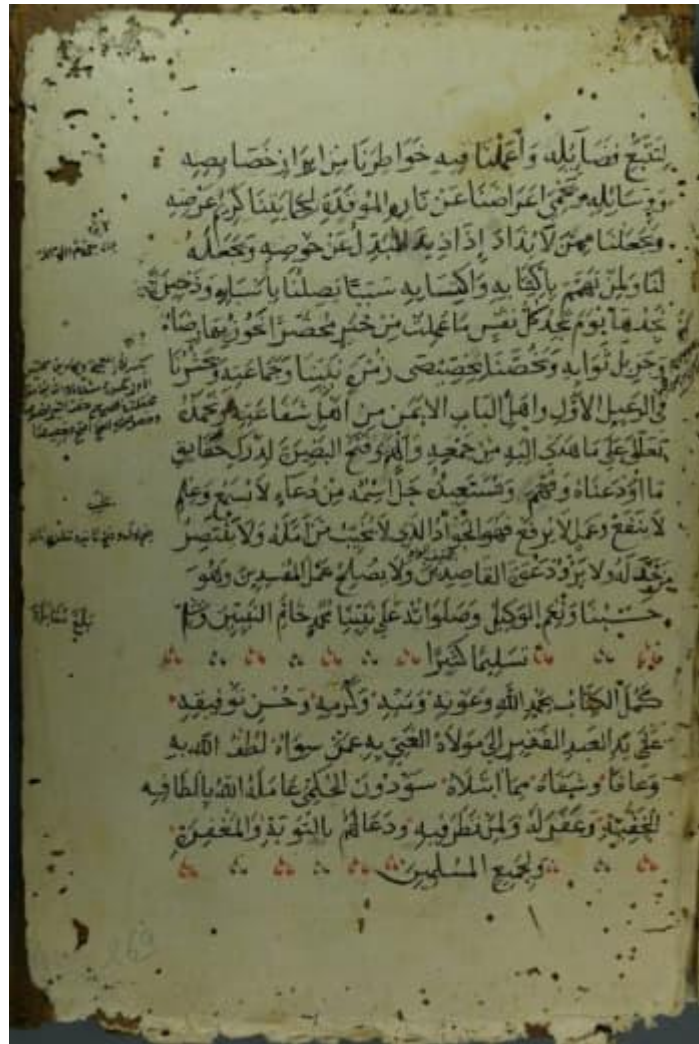 لتتبع فضائله وأعملنا فيه خواطرنا من إبراز خصائصه
ووسائله ونحمي اعراضنا عن ناره الموقدة لحمايتنا كريم عرضه
ويجعلنا ممن لا يذاد إذا ذيد المبدل عن حوضه ويجعله
لنا ولمن تهمم باكتتابه واكتسابه سببا يصلنا بأسبابه وذخيرة
نجدها يوم تجد كل نفس ما عملت من خير محضرا نحوز بها رضاه
وجزيل ثوابه ويخصنا بخصيصى زمرة نبينا وجماعته ويحشرنا
في الرعيل الأول واهل الباب الايمن من اهل شفاعته ونحمده
تعالى على ما هدى اليه من جمعه وألهم وفتح البصيرة لدرك حقايق
ما أودعناه وفهم ونستعيذه جل اسمه من دعاء لا يسمع وعلم
لا ينفع وعمل لا يرفع فهو الجواد الذي لا يخيب من أمله ولا ينتصر
من خذله ولا يرد دعوة القاصدين ولا يصلح عمل المفسدين وهو
حسبنا ونعم الوكيل وصلواته على نبينا محمد خاتم النبيين
تسليما كثيرا
كمل الكتاب بحمد الله وعونه ومنه وكرمه وحسن توفيقه
على يد العبد الفقير إلى مولاه الغني به عمن سواه لطف الله به
وعافاه وشفاه مما ابتلاه سودون الحكمي عامله الله بالطافه
الخفية وغفر له ولمن نظر فيه ودعا لهم بالتوبة والمغفرة
ولجميع المسلمين
بلغ مقابلة